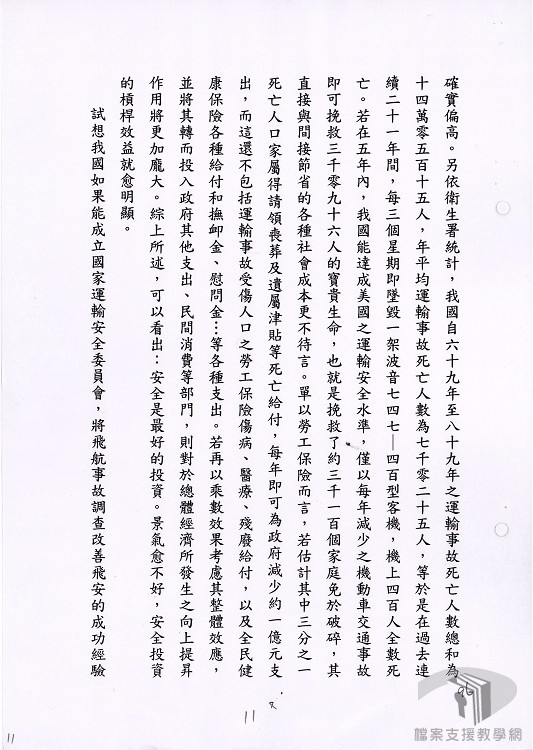 確實偏高。另依衛生署統計，我國自六十九年至八十九年之運輸事故死亡人數總和為
十四萬零五百十五人，年平均運輸事故死亡人數為七千零二十五人，等於是在過去連
續二十一年間，每三個星期即墜毀一架波音七四七—四百型客機，機上四百人全數死
亡。若在五年內，我國能達成美國之運輸安全水準，僅以每年減少之機動車交通事故
即可挽救三千零九十六人的寶貴生命，也就是挽救了約三千一百個家庭免於破碎，其
直接與間接節省的各種社會成本更不待言。單以勞工保險而言，若估計其中三分之一
死亡人口家屬得請領喪葬及遺屬津貼等死亡給付，每年即可為政府減少約一億元支
出，而這還不包括運輸事故受傷人口之勞工保險傷病、醫療、殘廢給付，以及全民健
康保險各種給付和撫卹金、慰問金…等各種支出。若再以乘數效果考慮其整體效應，
並將其轉而投入政府其他支出、民間消費等部門，則對於總體經濟所發生之向上提昇
作用將更加龐大。綜上所述，可以看出：安全是最好的投資。景氣愈不好，安全投資
的槓桿效益就愈明顯。
試想我國如果能成立國家運輸安全委員會，將飛航事故調查改善飛安的成功經驗
96
11
11
檔案支援教學網